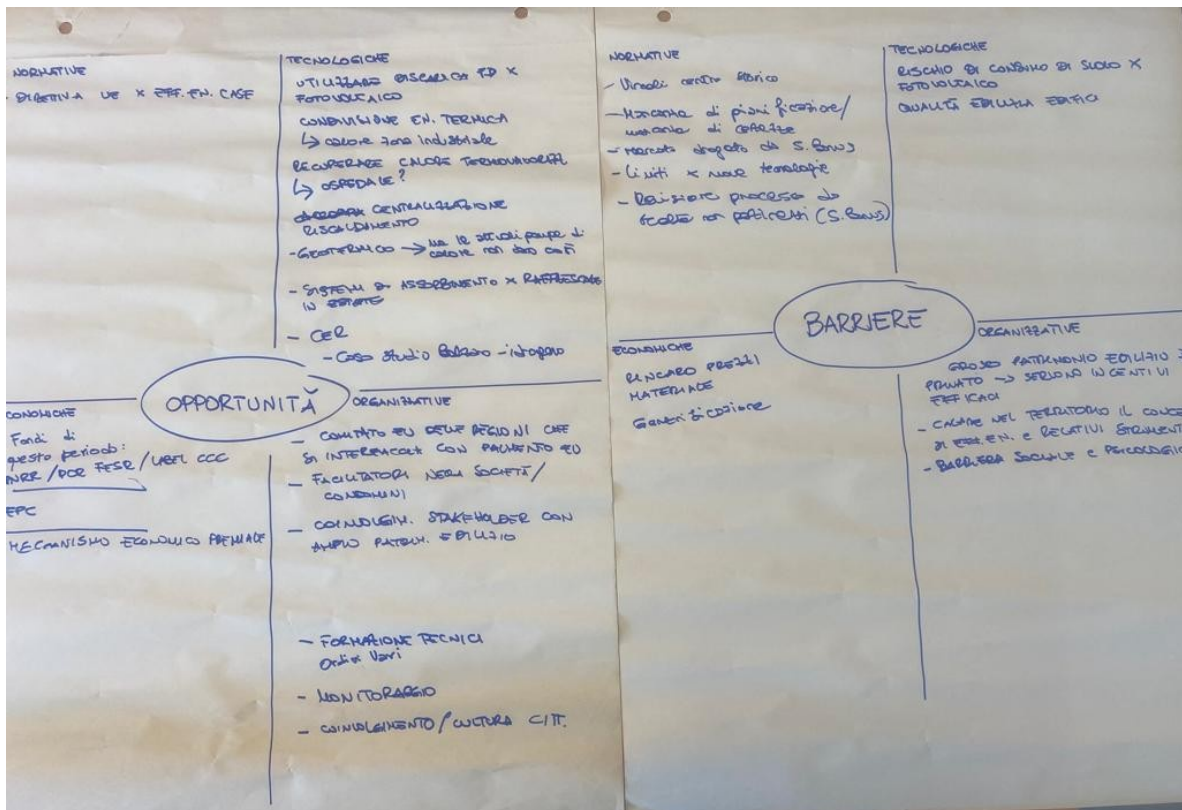 NORMATIVE
- DIRETTIVA UE X EFF. EN. CASE
TECNOLOGICHE
UTILIZZARE DISCARICA PD X
FOTOVOLTAICO
CONDIVISIONE EN. TERMICA
↳ calore zona industriale
RECUPERARE CALORE TERMOVALORIZZ.
↳ OSPEDALE?
CENTRALIZZAZIONE
RISCALDAMENTO
- GEOTERMICO → ma le attuali pompe di
calore non danno
- SISTEMI DI ASSORBIMENTO X RAFFRESCARE
IN ESTATE
- CER
- Caso studio
OPPORTUNITÀ
CONOMICHE
Fondi di
questo periodo:
NRR / POR FESR / LABEL CCC
EPC
MECCANISMO ECONOMICO PREMIALE
ORGANIZZATIVE
- COMITATO EU DELLE REGIONI CHE
SI INTERFACCIA CON PALMENTO EU
- FACILITATORI NELLA SOCIETÀ/
CONDOMINI
- COINVOLGIM. STAKEHOLDER CON
AMPIO PATRIM. EDILIZIO
- FORMAZIONE TECNICI
Ordini Vari
- MONITORAGGIO
- COINVOLGIMENTO / CULTURA CITT.
NORMATIVE
- Vincoli centro storico
- Mancanza di pianificazione/
mancanza di certezze
- Mercato drogato da S. Bonus
- Limiti x nuove tecnologie
- Revisione processo da
scelte non pertinenti (S. Bonus)
TECNOLOGICHE
RISCHIO DI CONSUMO DI SUOLO X
FOTOVOLTAICO
QUALITÀ EDILIZIA EDIFICI
BARRIERE
ECONOMICHE
RINCARO PREZZI
MATERIALE
Gentrificazione
ORGANIZZATIVE
GROSSO PATRIMONIO EDILIZIO
PRIVATO → SERVONO INCENTIVI
EFFICACI
- CALARE NEL TERRITORIO IL CONCE
DI EFF. EN. E RELATIVI STRUMENT
- BARRIERA SOCIALE E PSICOLOGIC